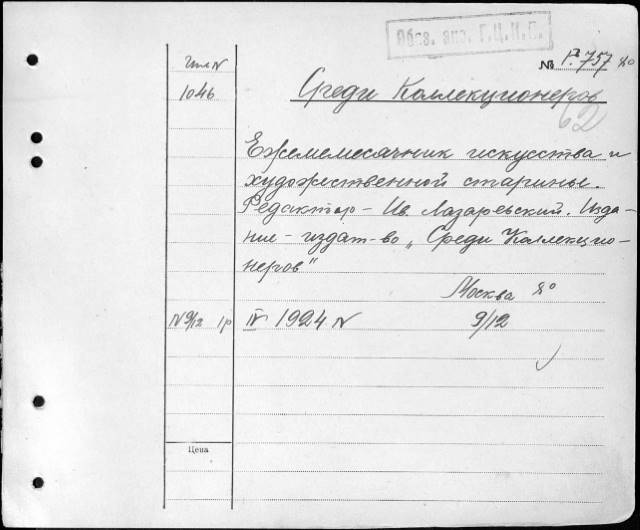 Обяз. экз. Г.Ц.К.П.
№ Р.757 8º
Инв N
1046
Среди Коллекционеров
62
Ежемемесячник искусства и
художественной старины.
Редактор – Ив. Лазаревский. Изда-
ние – издат-во „Среди Коллекцио-
неров"
Москва 8º
N 9/12 1р IV 1924 N 9/12
Цена